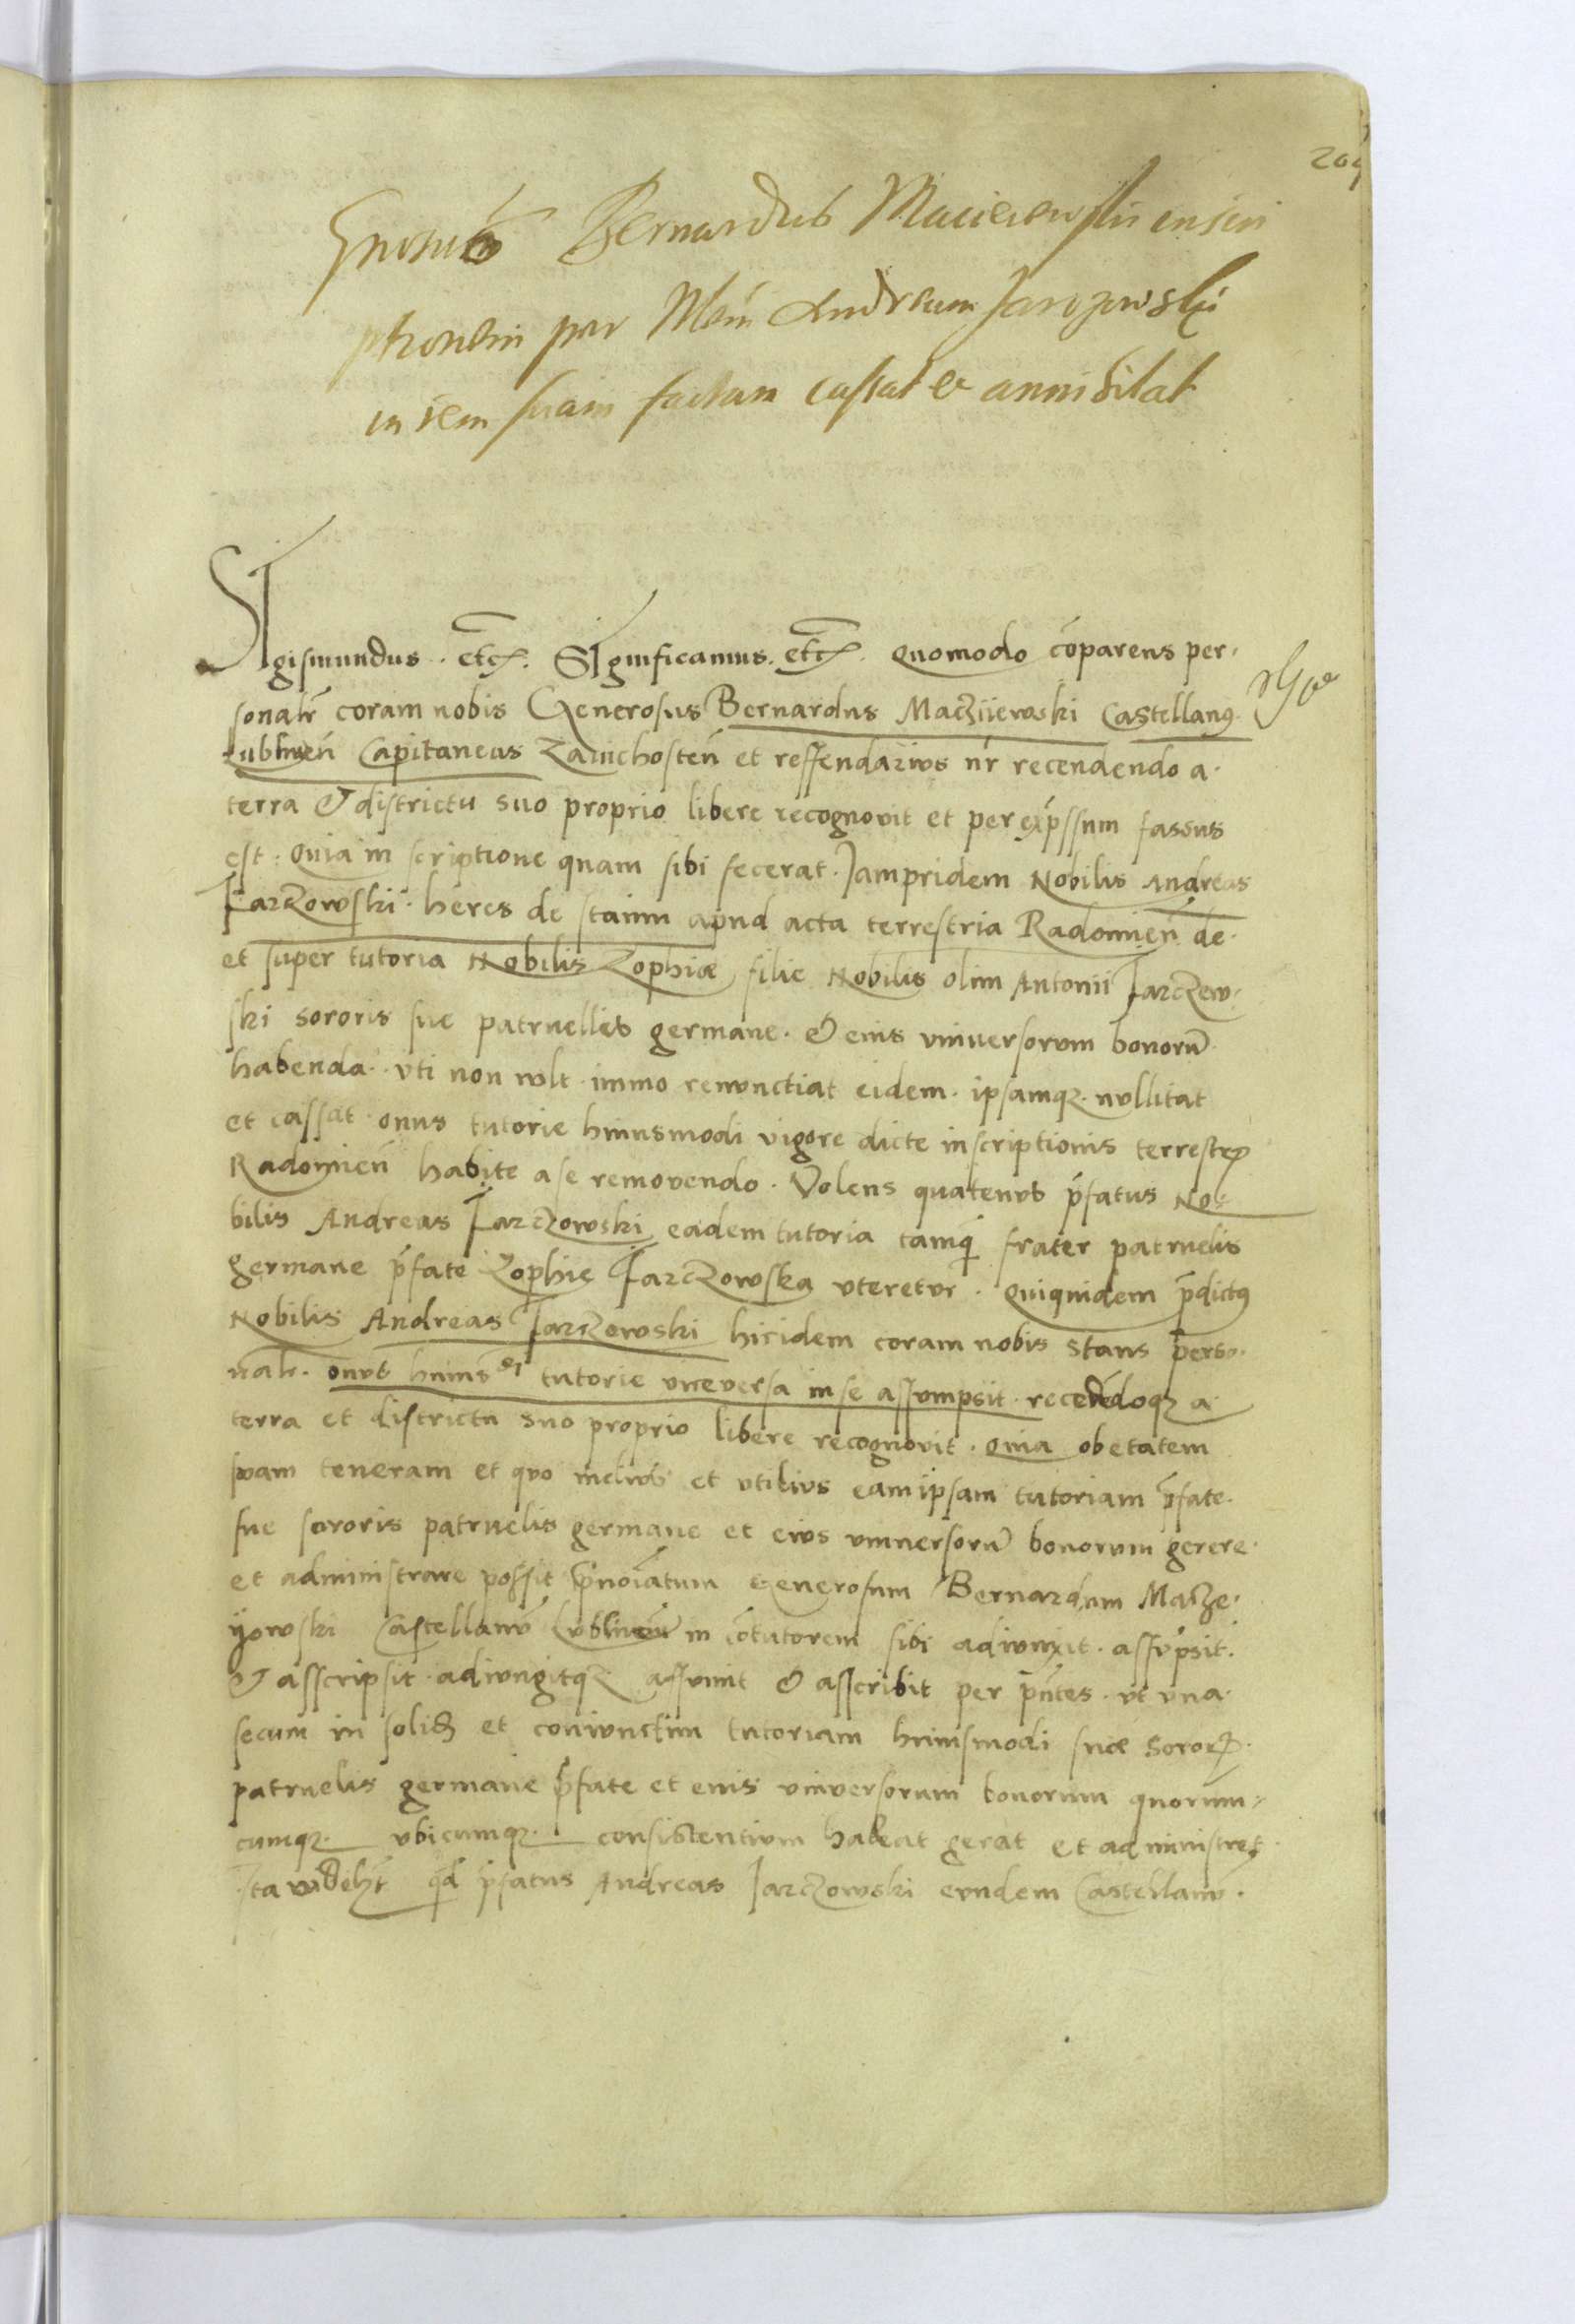 Bernardus Macieiewski inscri
ptionem per Andream Jarczowski
in rem suam factam cassat et annihilat
Sigismundus. etc. Significamus. etc. Quomodo cōparens per,
sonalr̄ coram nobis Generosus Bernardus Maczijewski Castellang.
Lublineñ Capitaneus Zawichosteñ et reffendarius nr̄ recendendo a.
terra & districtu suo proprio libere recognovit et per exp̄ssum fassus
est: Quia inscriptione quam sibi fecerat. Jampridem Nobilis Andreas
Jarczowski. heres de apud acta terrestria Radomieñ de.
et super tutoria Nobilis Zophiæ filie Nobilis olim Antonii Jarczew,
ski sororis sue patruellis germane. & eius vniuersorum bonorū.
habenda. vti non wlt. immo renunctiat eidem. ipsamqz. nullitat
et cassat. onus tutorie huiusmodi vigore dicte inscriptionis terrestr
Radomieñ habite a se removendo. Volens quatenus p̄fatus No:
bilis Andreas Jarczowski eadem tutoria tamq̄ frater patruelis
germane p̄fate Zophie Jarczowska uteretur. Quiquidem p̄dictg
Nobilis Andreas Jarczowski hicidem coram nobis stans perso.
nalr. onus huius tutorie in se assumpsit. recedēdoqz a.
terra et districtu suo proprio libere recognovit. Quia ob etatem
suam teneram et quo melius et utilius eam ipsam tutoriam p̄fate.
sue sororis patruelis germane et eius vniuersorū bonorum gerere.
et administrare possit p̄noīatum Generosum Bernardum Macze,
yowski Castellanū Lublineñ in cōtutorem sibi adiunxit. assūpsit.
& asscripsit. adiungitqz. assumit & asscribit per p̄ntes. ut una.
secum in solid et coniunctim tutoriam huiusmodi suæ soror.
patruelis germane p̄fate et eius vniuersorum bonorum quorum,
cumqz. ubicumqz. consistentium habeat gerat et administret
Ita qd p̄fatus Andreas Jarczowski eundem Castellanū.